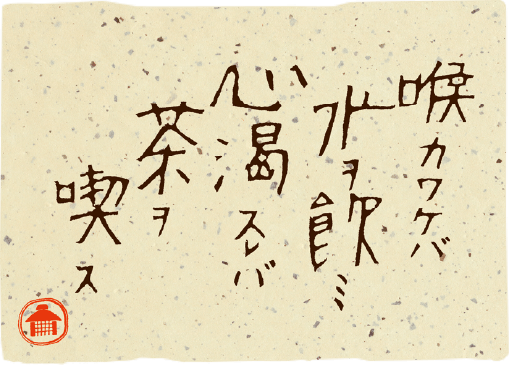 喉カワケバ
水ヲ飲ミ
心渇スレバ
茶ヲ
喫ス